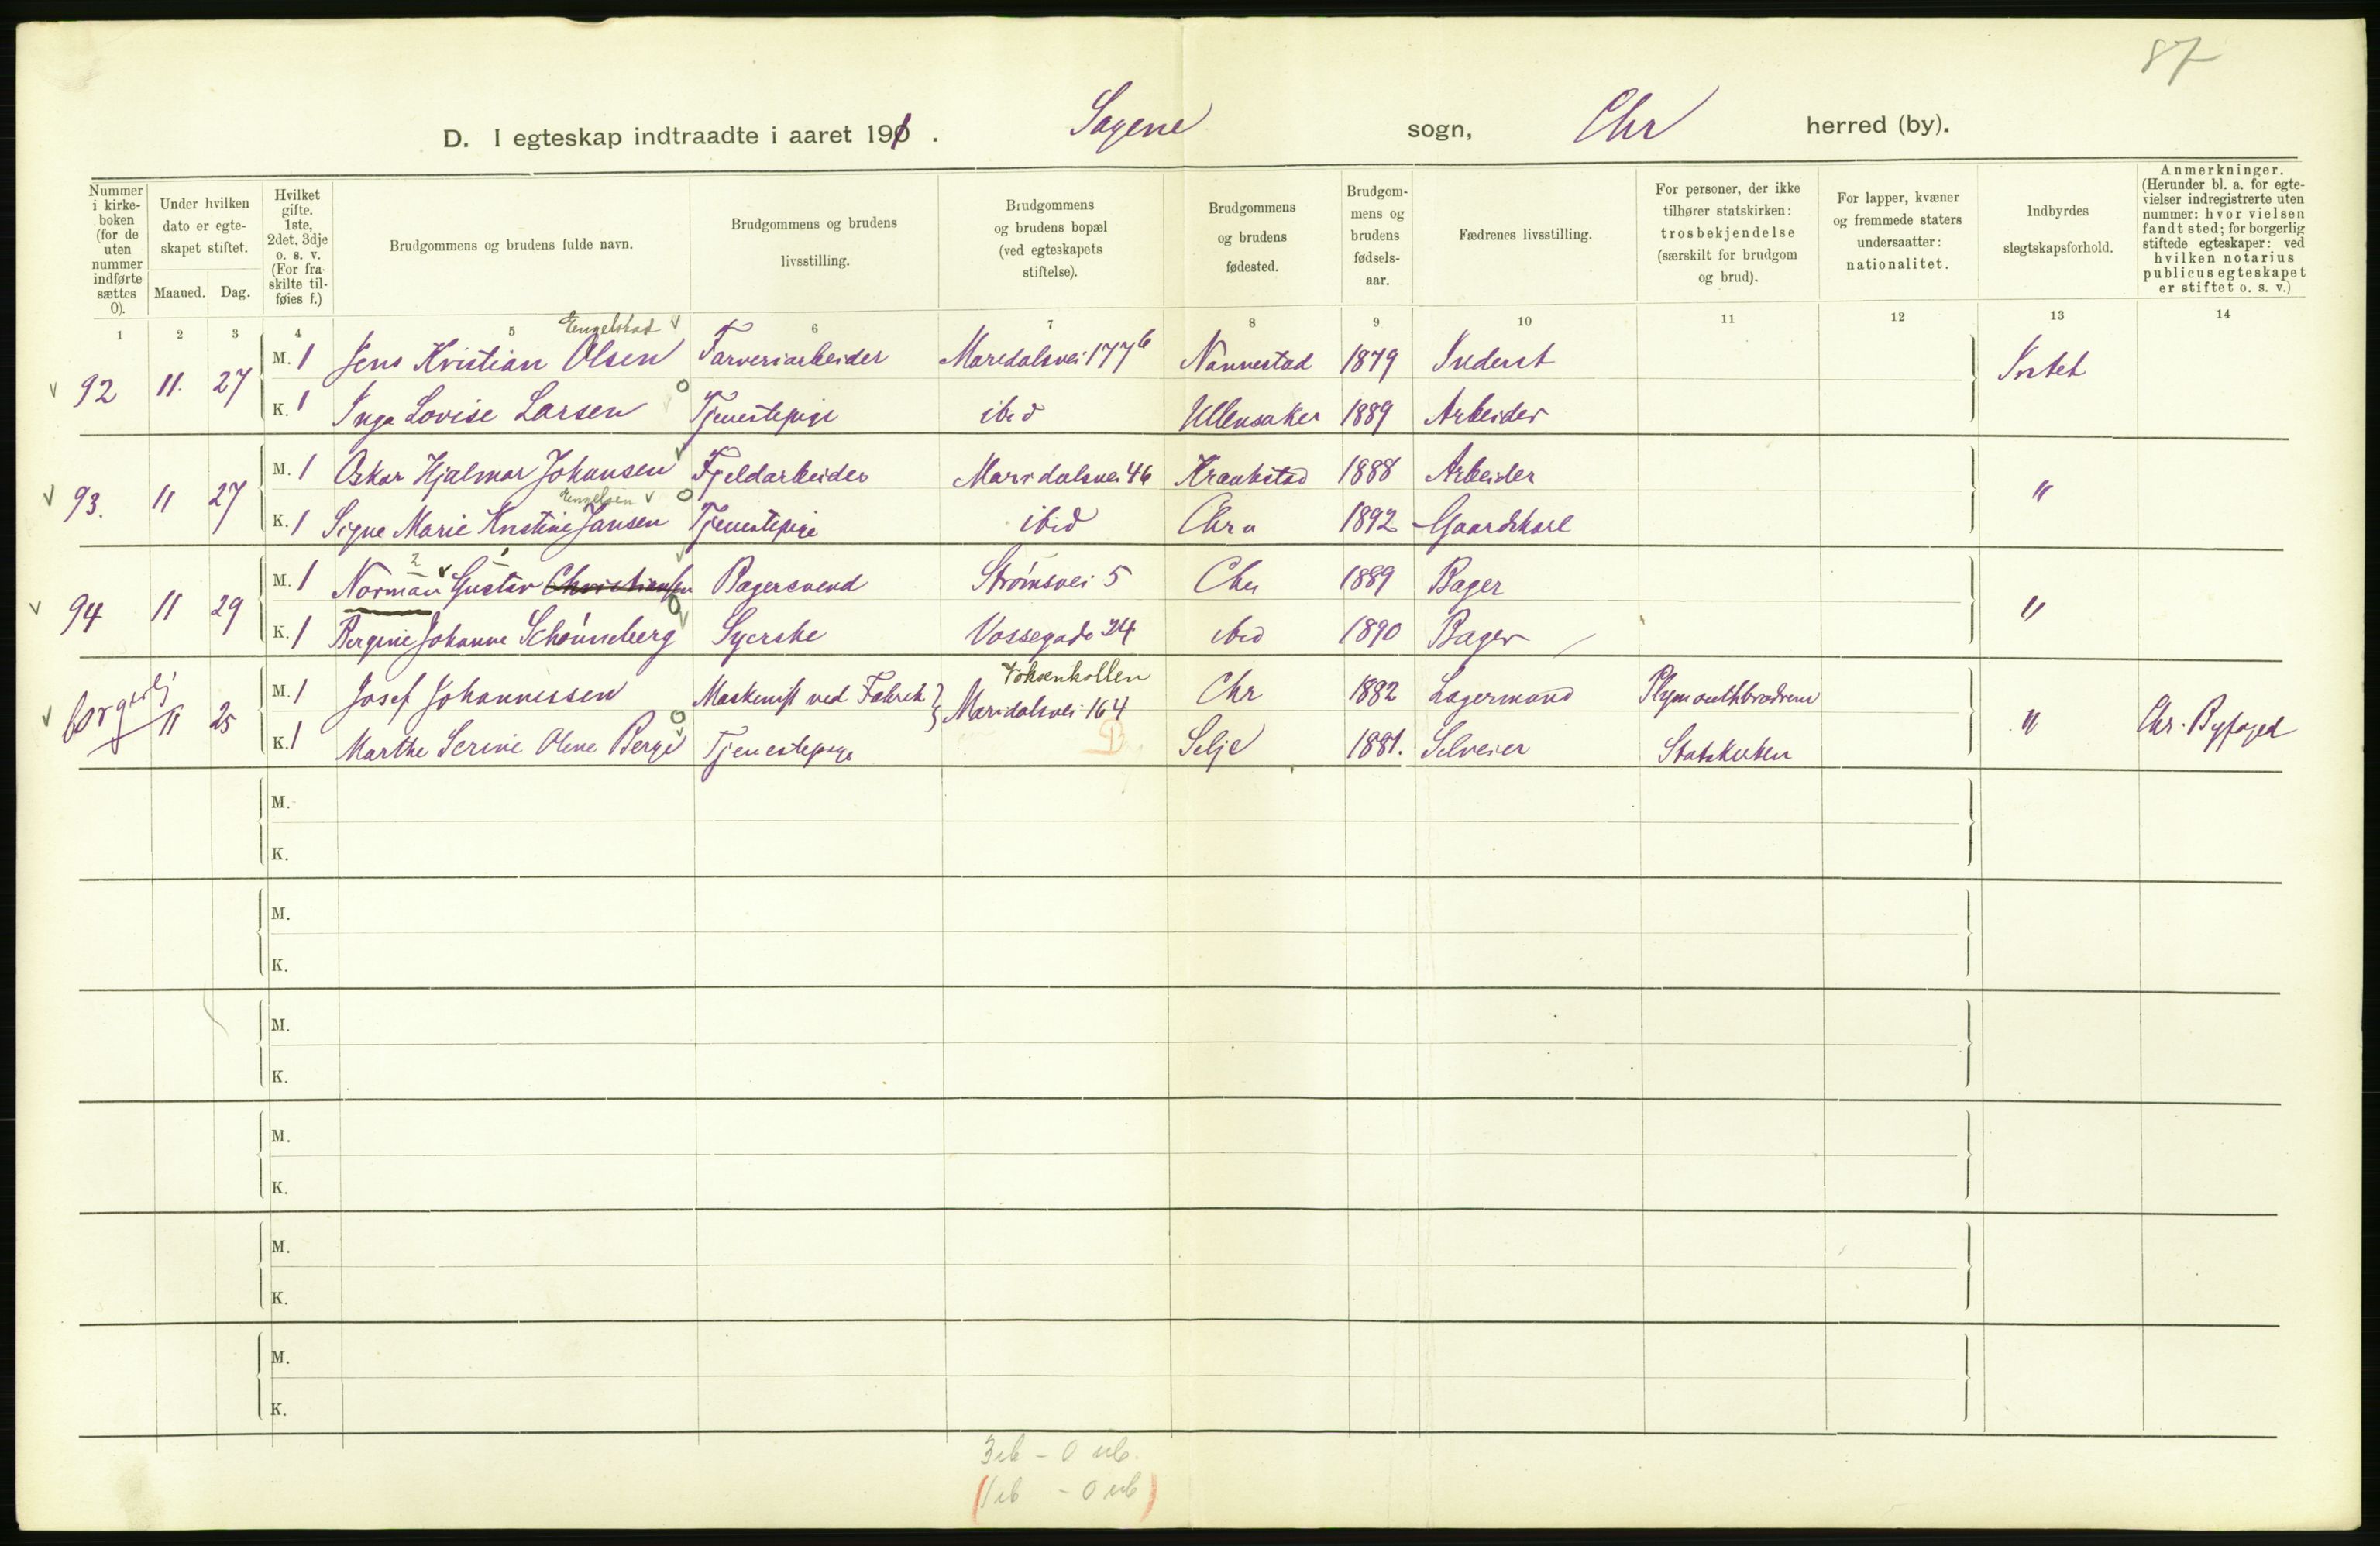 87
D. I egteskap indtraadte i aaret 191 . Sagene sogn, Chr herred (by).
Nummer i kirkeboken (for de uten nummer indførte sættes 0).
Under hvilken dato er egteskapet stiftet.
Maaned. Dag.
Hvilket gifte. 1ste, 2det, 3dje o. s. v. (For fraskilte tilføies f.)
Brudgommens og brudens fulde navn.
Brudgommens og brudens livsstilling.
Brudgommens og brudens bopæl (ved egteskapets stiftelse).
Brudgommens og brudens fødested.
Brudgommens og brudens fødselsaar.
Fædrenes livsstilling.
For personer, der ikke tilhører statskirken: trosbekjendelse (særskilt for brudgom og brud).
For lapper, kvæner og fremmede staters undersaatter: nationalitet.
Indbyrdes slegtskapsforhold.
Anmerkninger. (Herunder bl. a. for egtevielser indregistrerte uten nummer: hvor vielsen fandt sted; for borgerlig stiftede egteskaper: ved hvilken notarius publicus egteskapet er stiftet o. s. v.)
1 2 3 4 5 6 7 8 9 10 11 12 13 14
Engelstad
92 11. 27 M. 1 Jens Kristian Olsen Farveriarbeider Maridalsvei 177 b Nannestad 1879 Inderst Intet
K. 1 Inga Lovise Larsen Tjenestepige ibid Ullensaker 1889 Arbeider
93. 11 27 M. 1 Oskar Hjalmar Johansen Fjeldarbeider Maridalsvei 46 Kraakstad 1888 Arbeider "
Engelsen
K. 1 Signe Marie Kristine Jansen Tjenestepige ibid Chra 1892 Gaardskarl
94 11 29 M. 1 Norman Gustav Christiansen Bagersvend Strømsvei 5 Chr 1889 Bager "
K. 1 Bergine Johanne Schønneberg Syerske Vossegade 24 ibid 1890 Bager
Voksenkollen
borgerlig 11 25 M. 1 Josef Johannessen Maskinist ved Fabrik Maridalsvei 164 Chr 1882 Lagermand Plymouthbrødrene " Chr. Byfoged
K. 1 Marthe Serine Oline Berge Tjenestepige B Selje 1881. Selveier Statskirken
M.
K.
M.
K.
M.
K.
M.
K.
M.
K.
M.
K.
3 ib - 0 ub.
(1 ib - 0 ub)